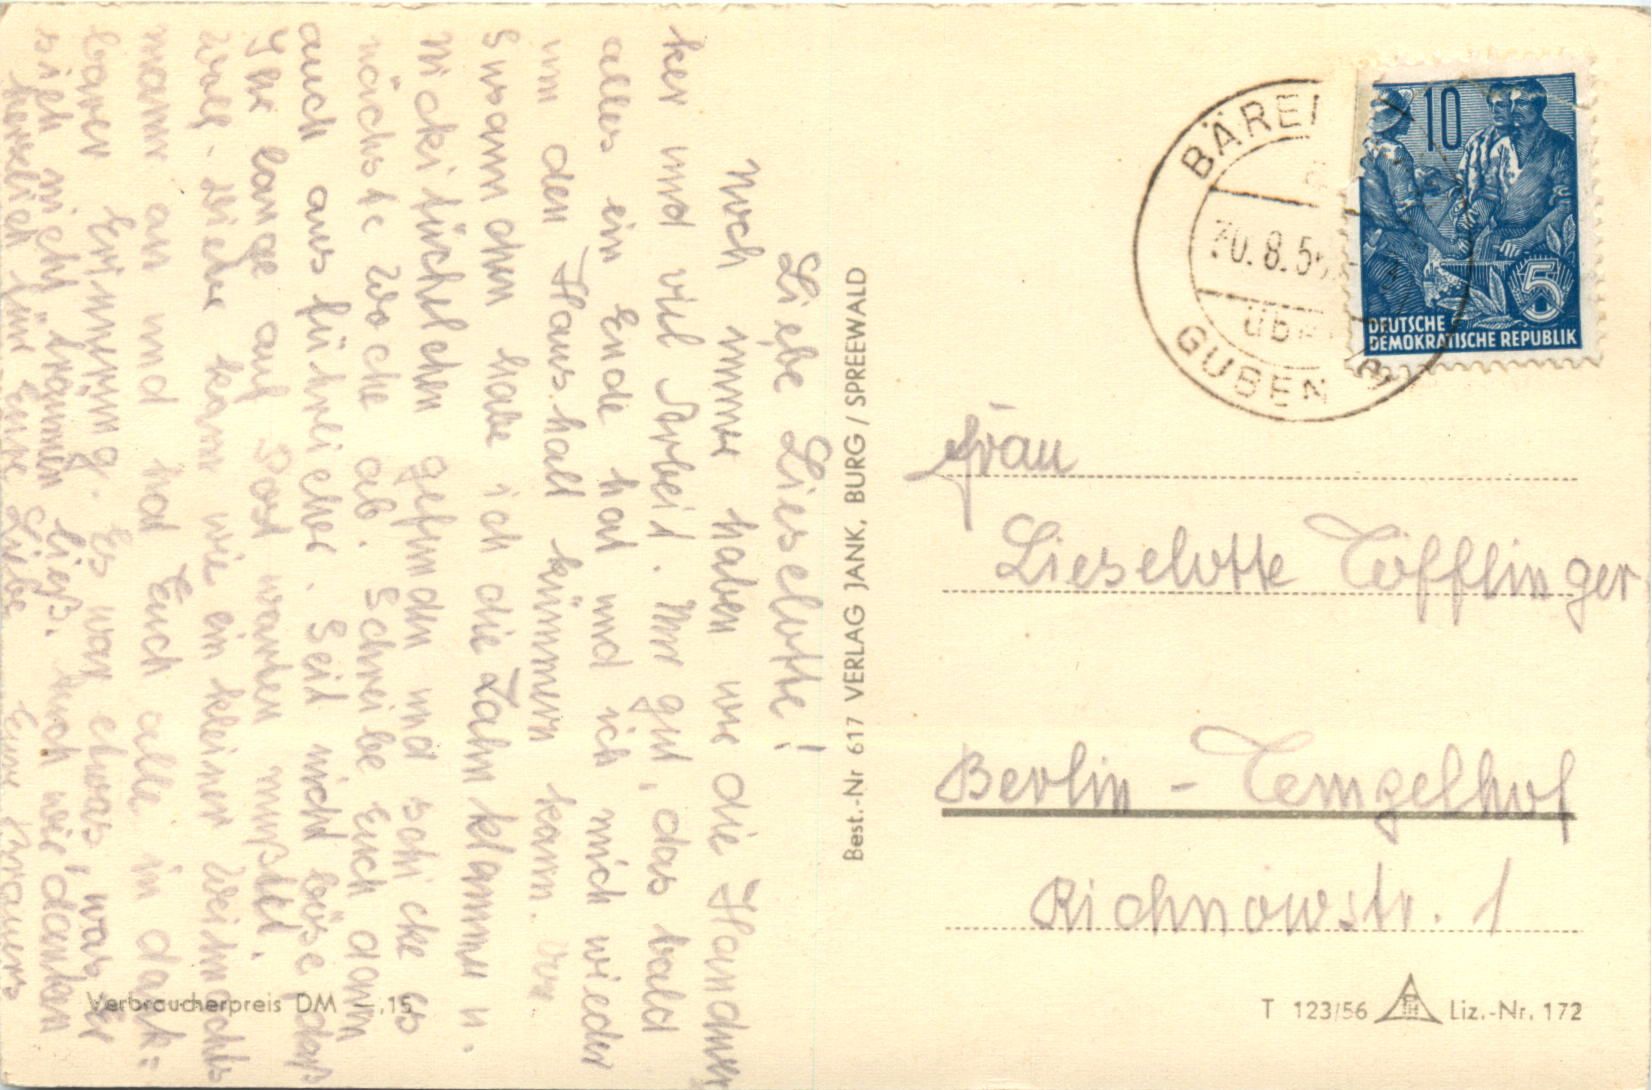 Liebe Lieselotte!
Noch immer haben wir die Handwer
ker und viel Arbeit. Nur gut, das bald
alles ein Ende hat und ich mich wieder
um den Haushalt kümmern kann.
Susannchen habe ich die Zahnklammer u.
Nickitüchelchen gefunden und schicke es
nächste Woche ab. Schreibe Euch dann
auch ausführlicher. Seid nicht böse daß
Ihr lange auf Post warten mußtet.
Wolf-Diether kam wie ein kleiner Weihnachts
mann an und hat Euch alle in dank=
barer Erinnerung. Es war etwas, was er
sich nicht träumen ließ. Auch wir danken
herzlich für Eure Liebe Eure Brauers
Verbraucherpreis DM —,15
Best.-Nr 617 VERLAG JANK, BURG / SPREEWALD
BÄREI
20.8.5
GUBEN
10
5
DEUTSCHE
DEMOKRATISCHE REPUBLIK
Frau
Lieselotte Töfflinger
Berlin - Tempelhof
Richnowstr. 1
T 123/56 Liz.-Nr. 172